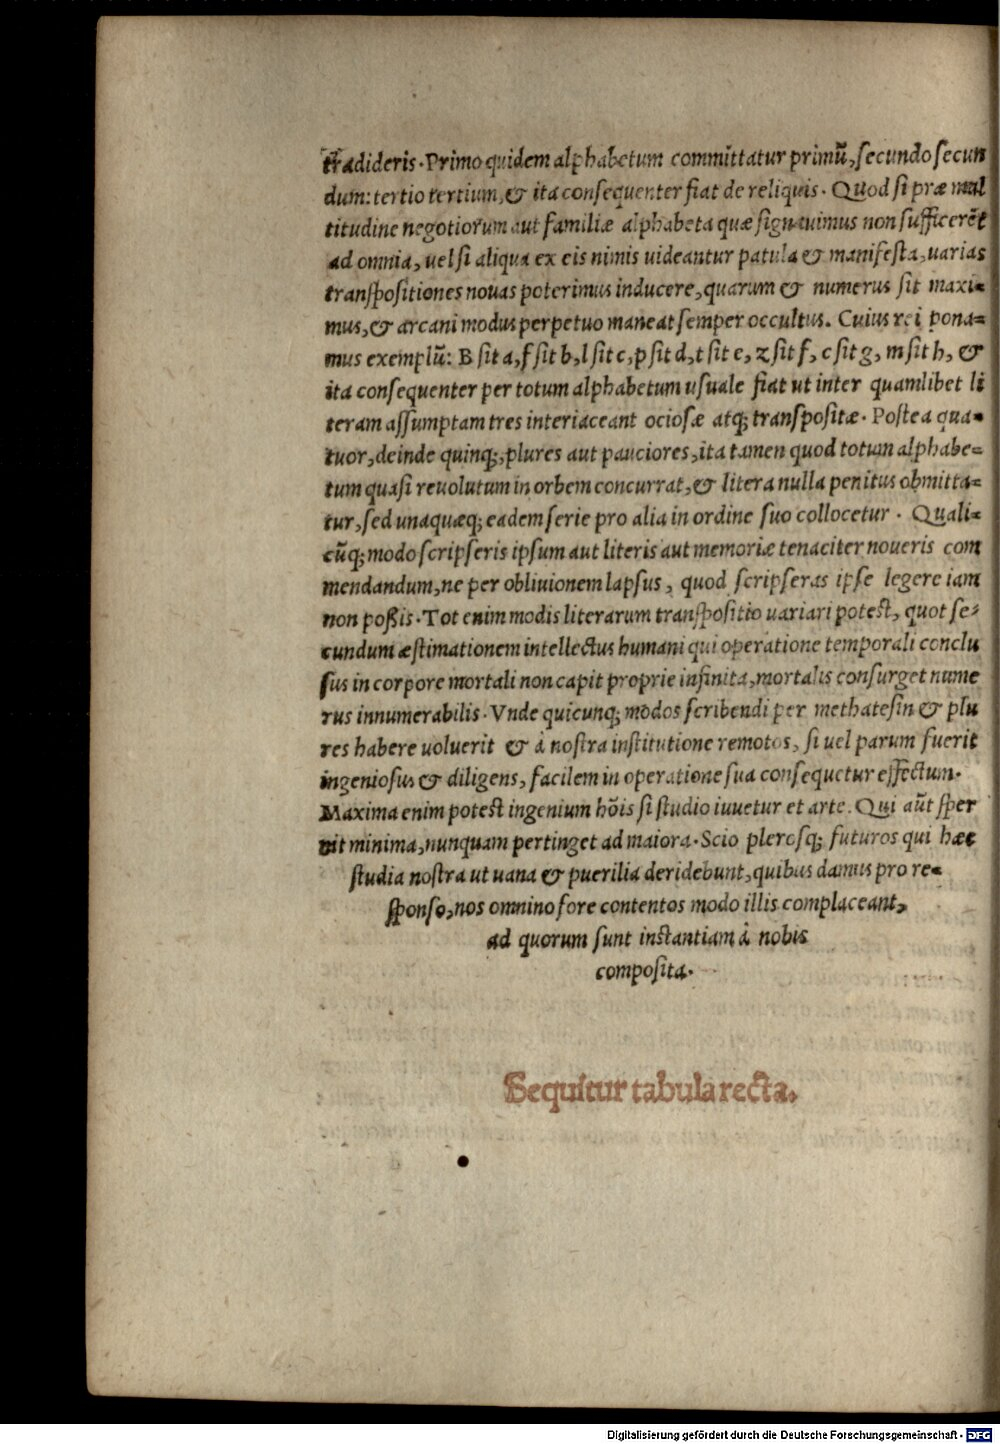 tradideris. Primo quidem alphabetum committatur primũ, secundo secun
dum: tertio tertium, & ita consequenter fiat de reliquis. Quod si præ mul
titudine negotiorum aut familiæ alphabeta quæ signauimus non sufficerẽt
ad omnia, uel si aliqua ex eis nimis uideantur patula & manifesta, uarias
transpositiones nouas poterimus inducere, quarum & numerus sit maxi=
mus, & arcani modus perpetuo maneat semper occultus. Cuius rei pona=
mus exemplũ: B sit a, f sit b, l sit c, p sit d, t sit e, z sit f, c sit g, m sit h, &
ita consequenter per totum alphabetum usuale fiat ut inter quamlibet li
teram assumptam tres interiaceant ociosæ atq; transpositæ. Postea qua=
tuor, deinde quinq;, plures aut pauciores, ita tamen quod totum alphabe=
tum quasi reuolutum in orbem concurrat, & litera nulla penitus obmitta=
tur, sed unaquæq; eadem serie pro alia in ordine suo collocetur. Quali=
cũq; modo scripseris ipsum aut literis aut memoriæ tenaciter noueris com
mendandum, ne per obliuionem lapsus, quod scripseras ipse legere iam
non poßis. Tot enim modis literarum transpositio uariari potest, quot se=
cundum æstimationem intellectus humani qui operatione temporali conclu
sus in corpore mortali non capit proprie infinita, mortalis consurget nume
rus innumerabilis. Vnde quicunq; modos scribendi per methatesin & plu
res habere uoluerit & à nostra institutione remotos, si uel parum fuerit
ingeniosus & diligens, facilem in operatione sua consequetur effectum.
Maxima enim potest ingenium hõis si studio iuuetur et arte. Qui aũt sper
nit minima, nunquam pertinget ad maiora. Scio plerosq; futuros qui hæc
studia nostra ut uana & puerilia deridebunt, quibus damus pro re=
sponso, nos omnino fore contentos modo illis complaceant,
ad quorum sunt instantiam à nobis
composita.
Sequitur tabula recta.
Digitalisierung gefördert durch die Deutsche Forschungsgemeinschaft - DFG